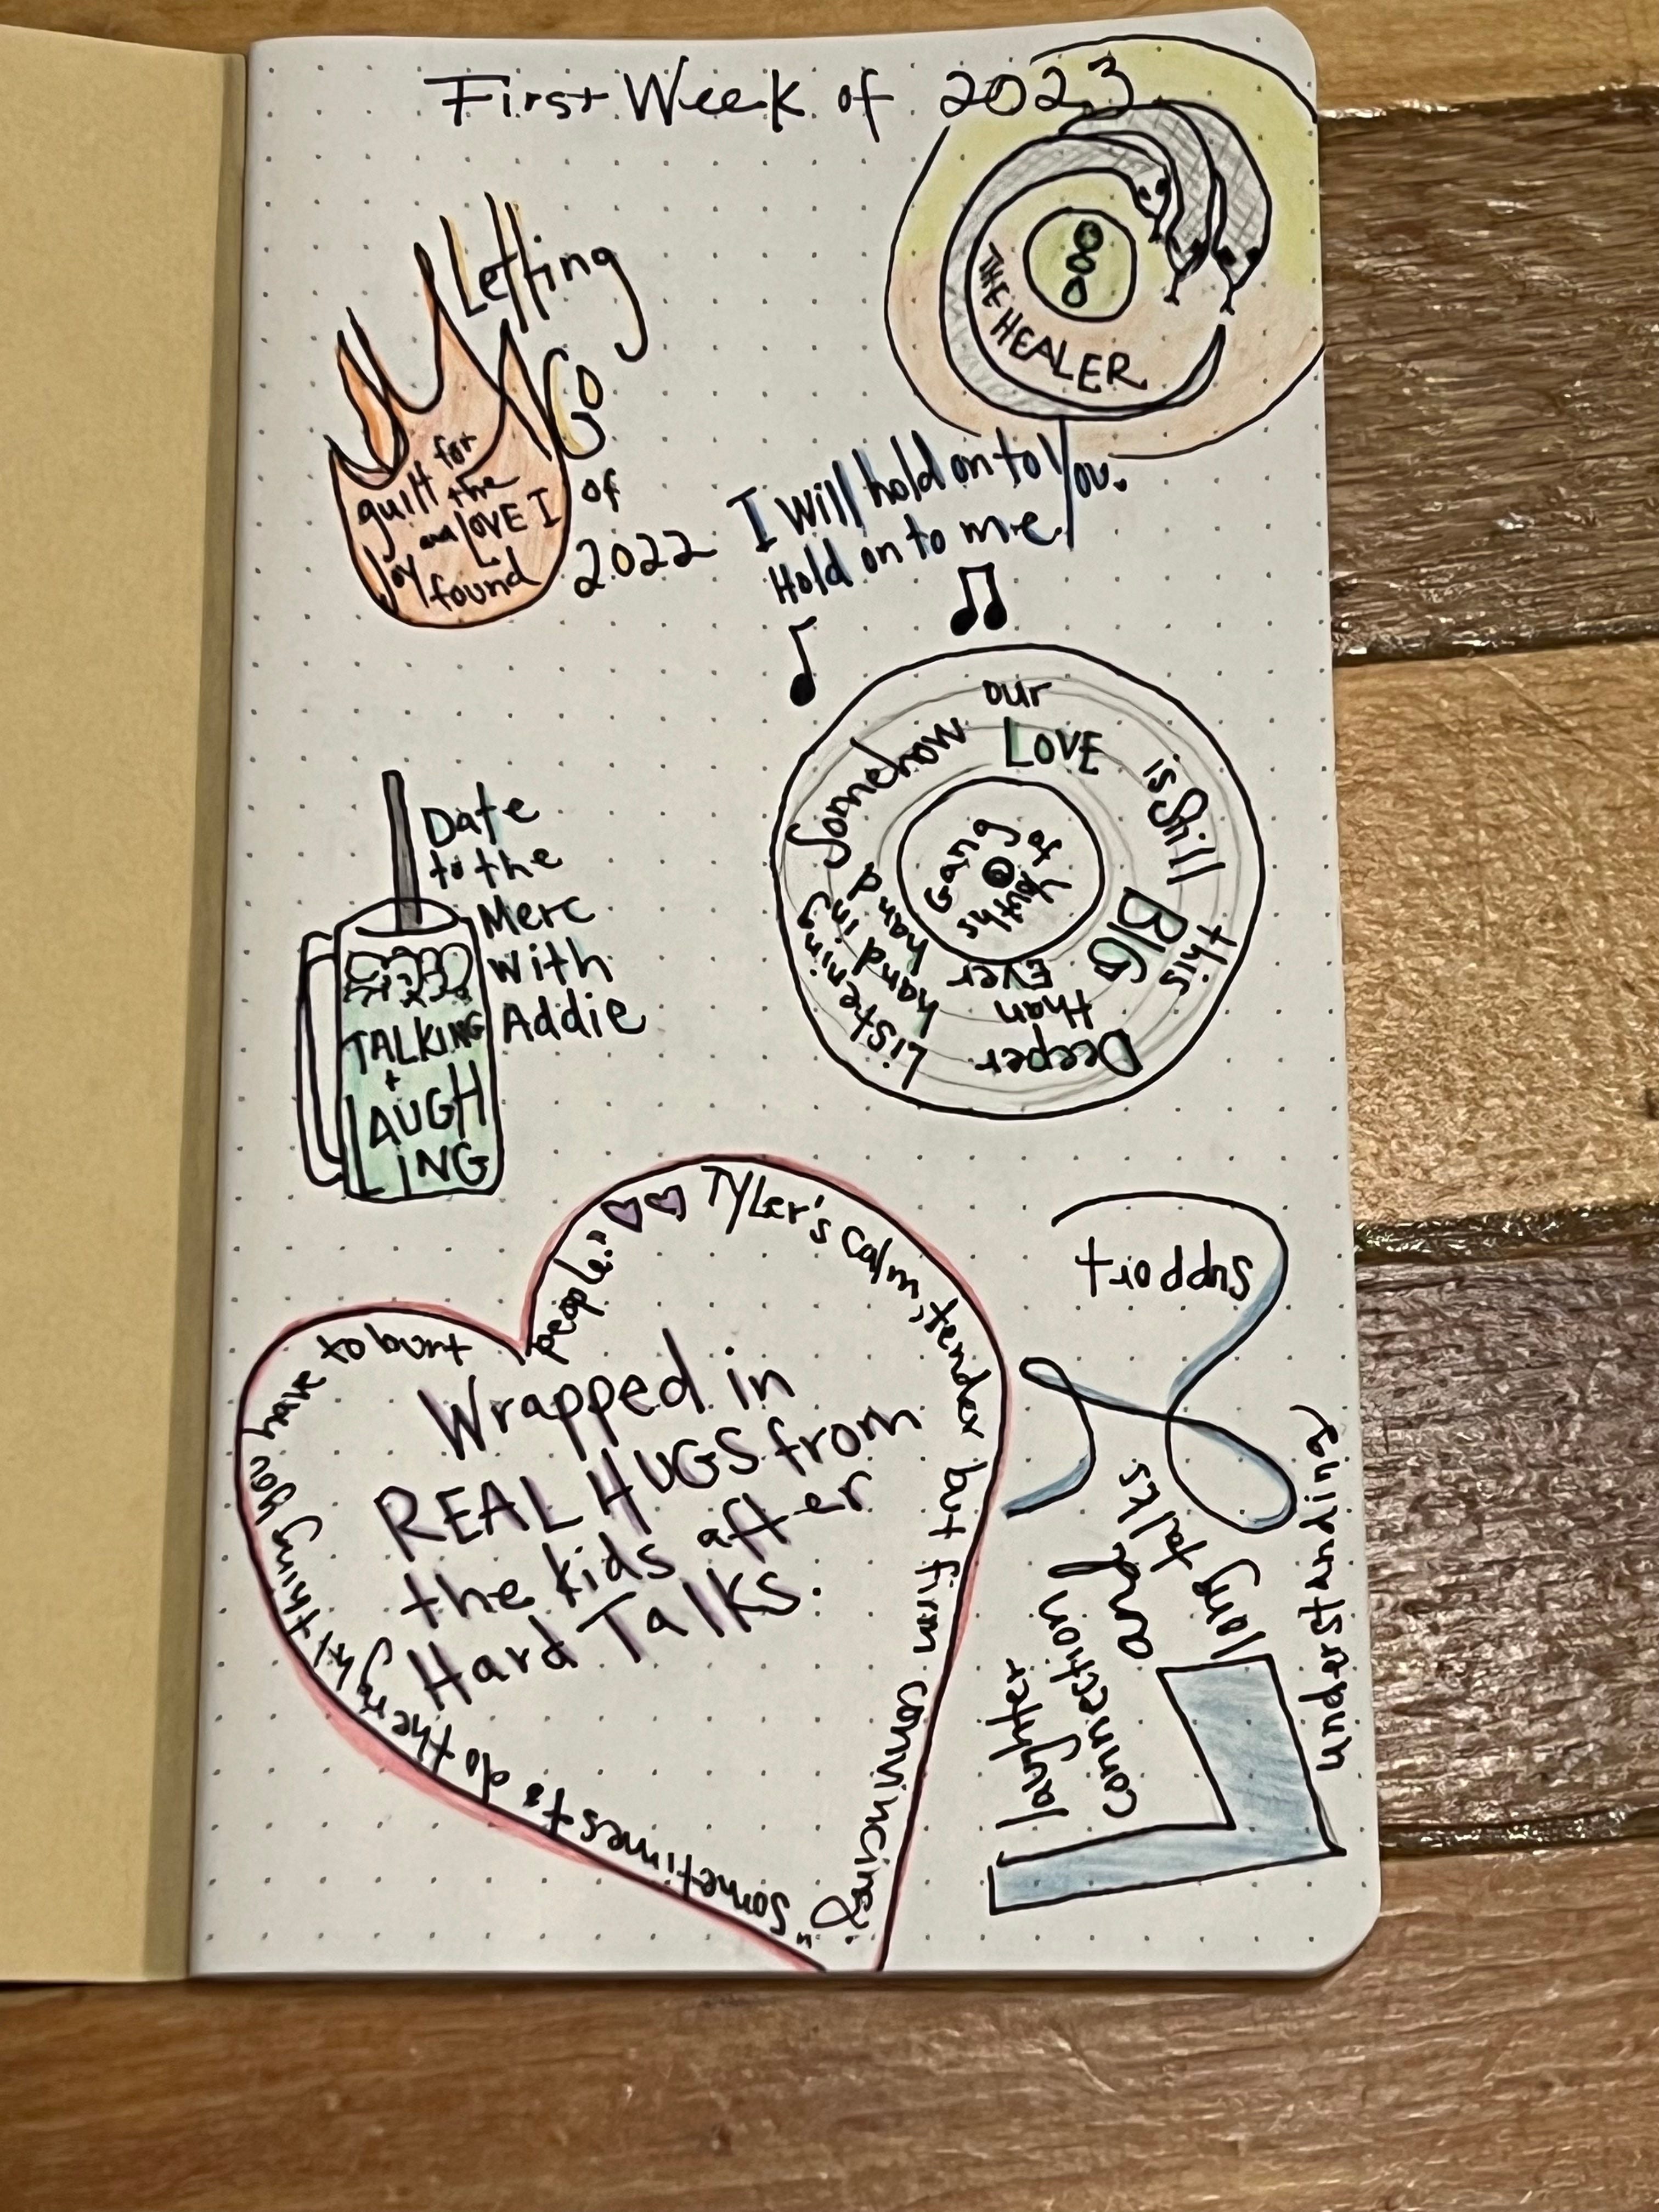 First Week of 2023
Letting
GO
of
2022
guilt for
the
and LOVE I
joy
found
THE HEALER
I will hold on to you.
Hold on to me.
Date
to the
Merc
with
Addie
TALKING
+
LAUGH
ING
Somehow our LOVE is still this BIG
Deeper than Ever
Listening hand in hand
Gang of youths
Tyler's calm, tender but firm convincing.
"Sometimes to do the right thing you have to hurt people."
Wrapped in
REAL HUGS from
the kids after
Hard Talks.
support
laughter
connection
and
long talks
understanding